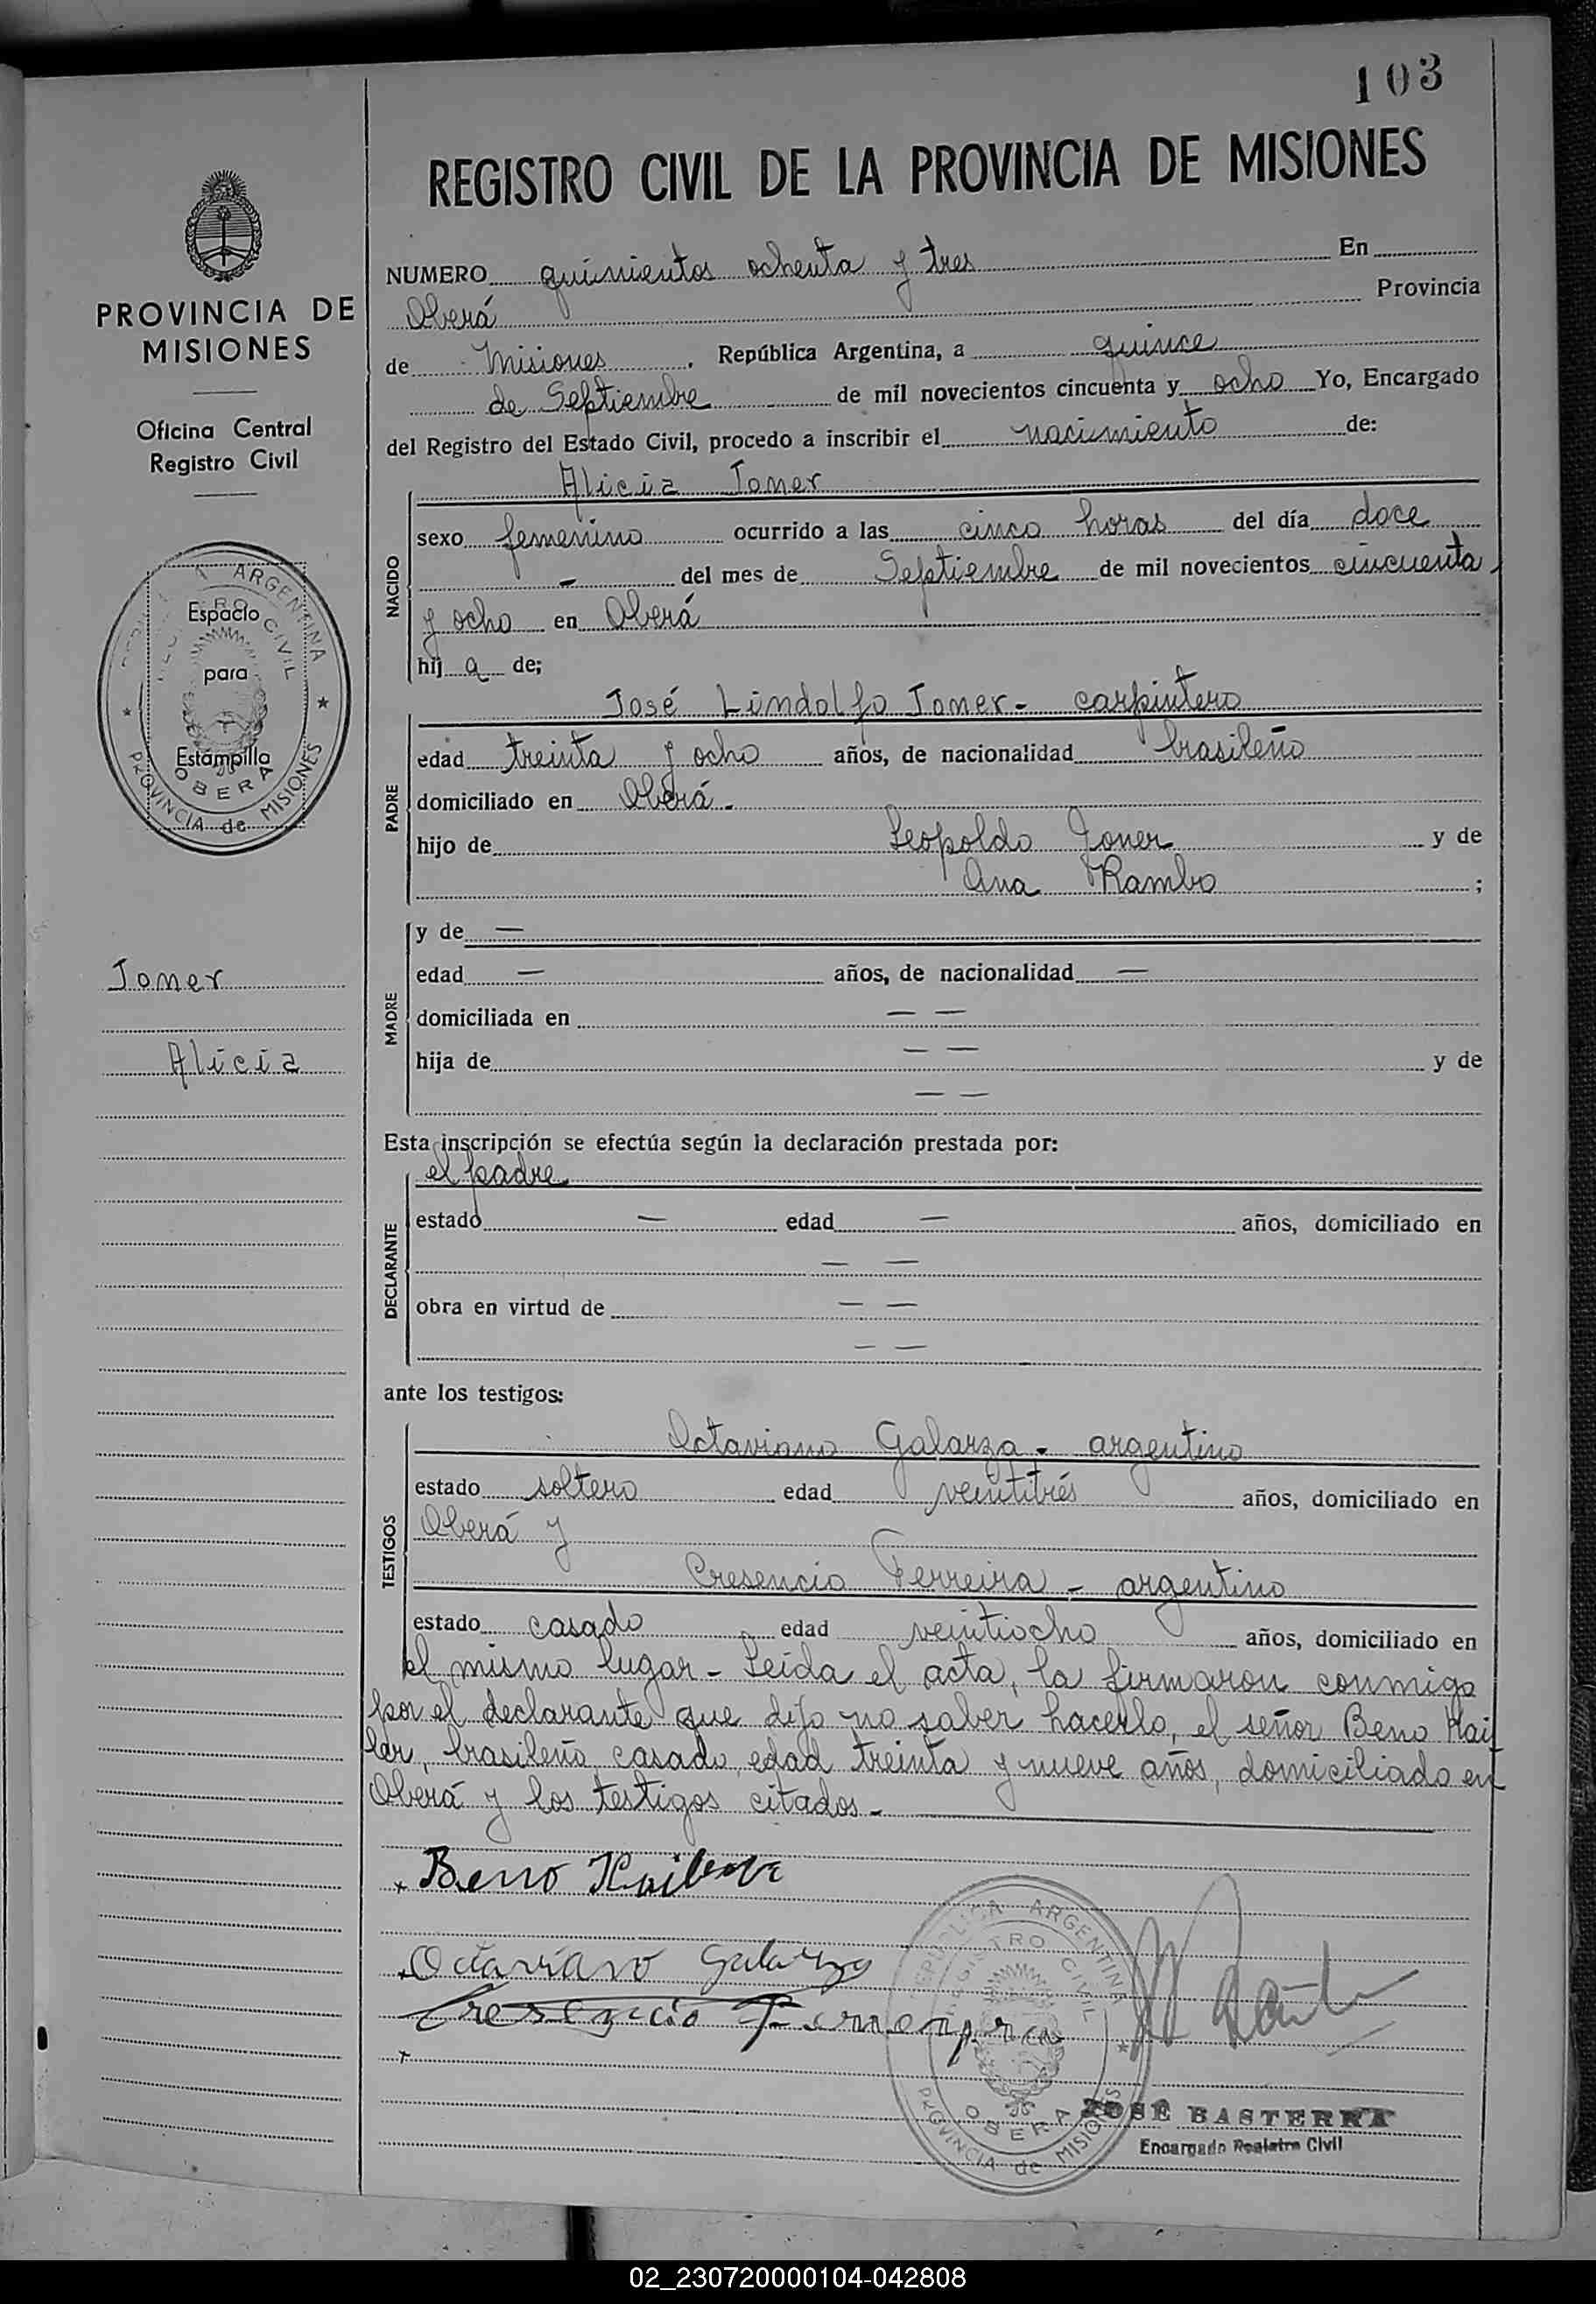 103
REGISTRO CIVIL DE LA PROVINCIA DE MISIONES
PROVINCIA DE
MISIONES
Oficina Central
Registro Civil
Espacio
para
Estampilla
ARGENTINA
CIVIL
OBERA
PROVINCIA de MISIONES
Joner
Alicia
NUMERO quinientos ochenta y tres En
Oberá Provincia
de Misiones, República Argentina, a quince
de Septiembre de mil novecientos cincuenta y ocho Yo, Encargado
del Registro del Estado Civil, procedo a inscribir el nacimiento de:
NACIDO
Alicia Joner
sexo femenino ocurrido a las cinco horas del día doce
— del mes de Septiembre de mil novecientos cincuenta
y ocho en Oberá
hij a de;
PADRE
José Lindolfo Joner - carpintero
edad treinta y ocho años, de nacionalidad brasileño
domiciliado en Oberá -
hijo de Leopoldo Joner y de
Ana Rambo ;
MADRE
y de —
edad — años, de nacionalidad —
domiciliada en — —
hija de — — y de
— —
Esta inscripción se efectúa según la declaración prestada por:
DECLARANTE
el padre
estado — edad — años, domiciliado en
— —
obra en virtud de — —
— —
ante los testigos:
TESTIGOS
Octaviano Galarza - argentino
estado soltero edad veintitrés años, domiciliado en
Oberá y
Cresencio Ferreira - argentino
estado casado edad veintiocho años, domiciliado en
el mismo lugar - Leída el acta, la firmaron conmigo
por el declarante que dijo no saber hacerlo, el señor Beno Kai
ler, brasileño, casado, edad treinta y nueve años, domiciliado en
Oberá y los testigos citados -
Beno
Octaviano Galarza
Cresencio
REPUBLICA ARGENTINA
REGISTRO CIVIL
OBERA
PROVINCIA de MISIONES
JOSÉ BASTERRA
Encargado Registro Civil
02_230720000104-042808